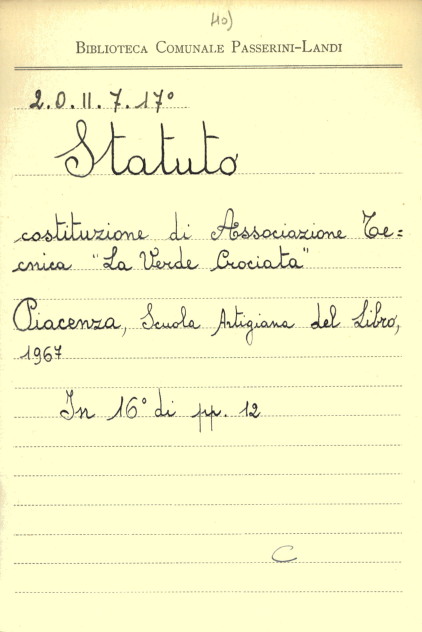 40)
BIBLIOTECA COMUNALE PASSERINI-LANDI
2.O.II.7.17°
Statuto
costituzione di Associazione Te=
cnica "La Verde Crociata"
Piacenza, Scuola Artigiana del Libro,
1967
In 16° di pp. 12
C